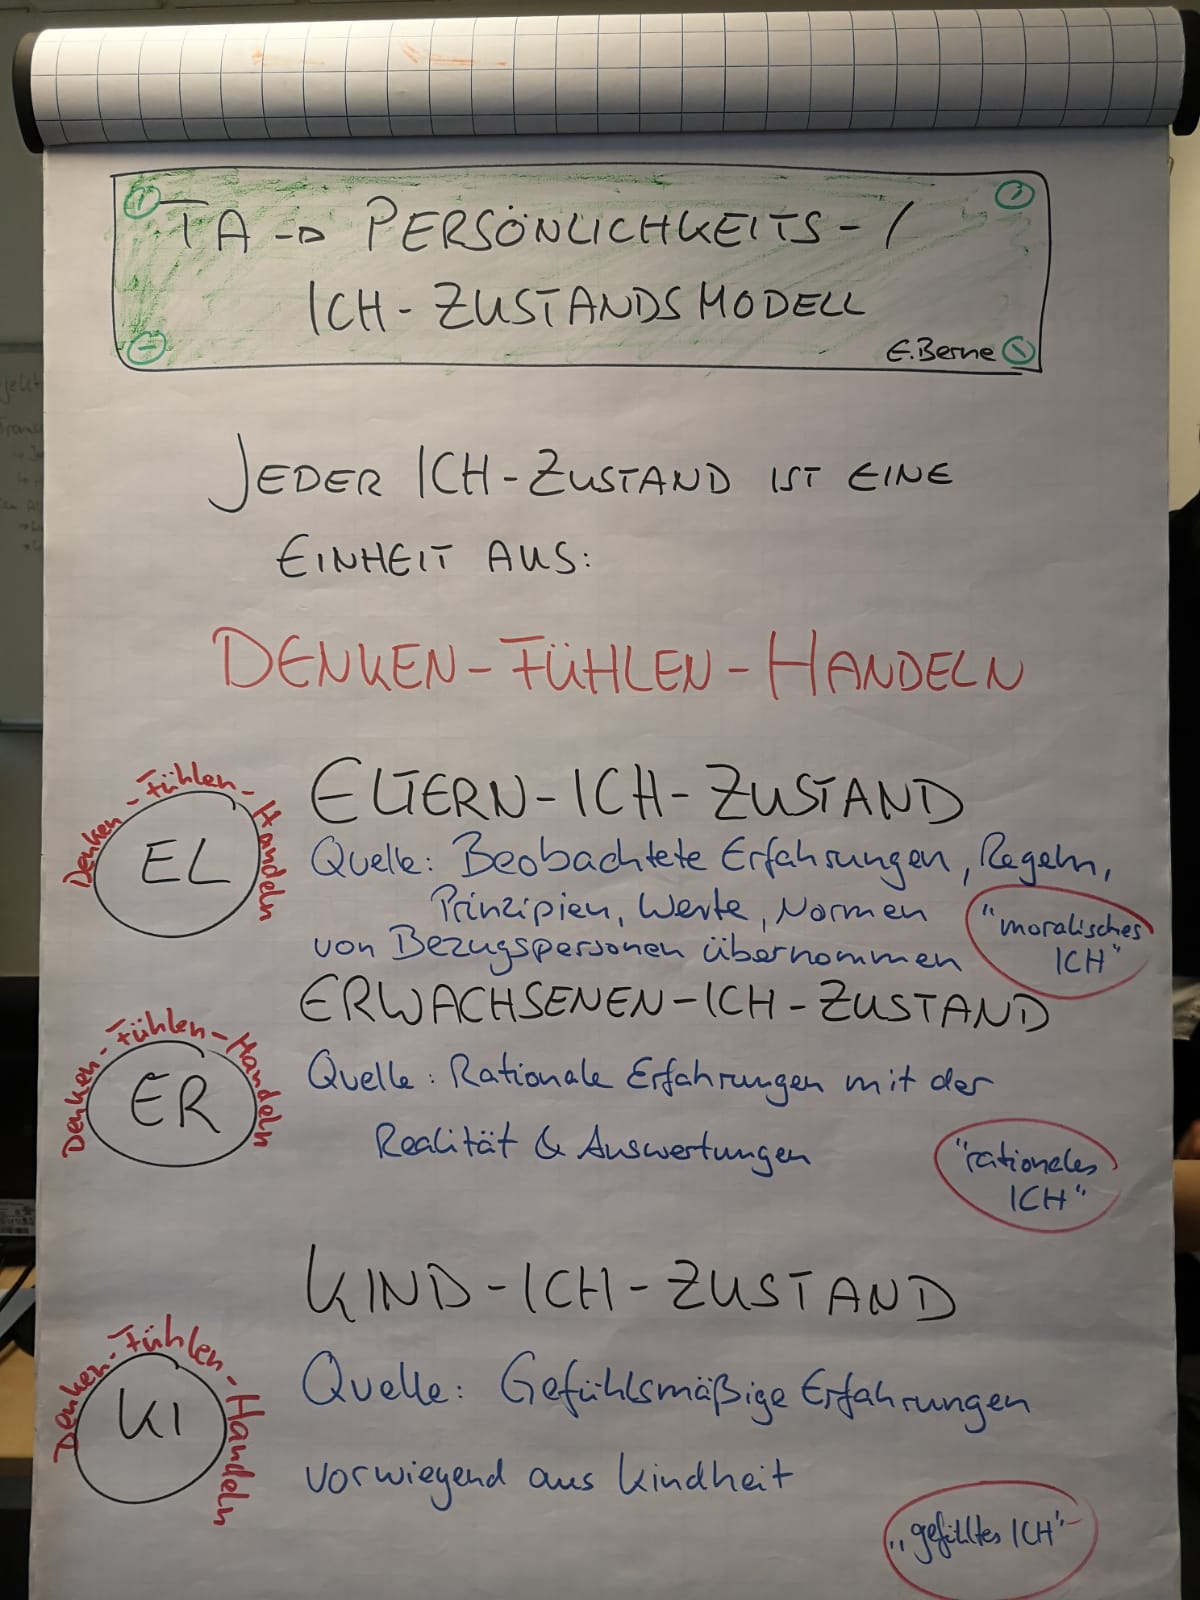 TA → PERSÖNLICHKEITS- /
ICH-ZUSTANDSMODELL
E. Berne
JEDER ICH-ZUSTAND IST EINE
EINHEIT AUS:
DENKEN-FÜHLEN-HANDELN
Denken-Fühlen-Handeln
EL
ELTERN-ICH-ZUSTAND
Quelle: Beobachtete Erfahrungen, Regeln,
Prinzipien, Werte, Normen
von Bezugspersonen übernommen
"moralisches
ICH"
Denken-Fühlen-Handeln
ER
ERWACHSENEN-ICH-ZUSTAND
Quelle: Rationale Erfahrungen mit der
Realität & Auswertungen
"rationales
ICH"
Denken-Fühlen-Handeln
KI
KIND-ICH-ZUSTAND
Quelle: Gefühlsmäßige Erfahrungen
vorwiegend aus Kindheit
„gefühltes ICH"